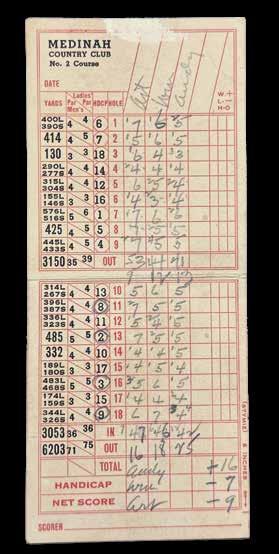 MEDINAH
COUNTRY CLUB
No. 2 Course
DATE
Art
Andy
W.+
L.—
H.O
YARDS Par Men's Ladies' Par HDCP HOLE
400L 390S 4 4 6 1 7 6 5
414 4 5 12 2 5 6 5
130 3 3 18 3 6 4 3
290L 277S 4 4 14 4 4 4 4
315L 304S 4 4 12 5 6 5 4
155L 146S 3 3 16 6 4 3 4
576L 516S 5 6 1 7 7 6 6
425 4 5 8
445L 433S 4 5 9
3150 35 39 OUT 53 44 41
9 12 13
314L 267S 4 4 13 10 5 6 5
396L 387S 4 4 8 11 7 5 5
336L 323S 4 4 11 12 5 4 4
485 5 5 2 13 7 5 5
332 4 4 10 14 4 4 5
189L 180S 3 3 17 15 4 5 4
483L 468S 5 5 3 16 5 6 5
174L 159S 3 3 15 17 4 4 4
344L 326S 4 4 9 18 6 7
3053 36 36 IN 47 46 42
6203 71 75 OUT 16 18 25
TOTAL Andy +16
HANDICAP -7
NET SCORE Art -9
SCORER
(STYMIE) 6 INCHES